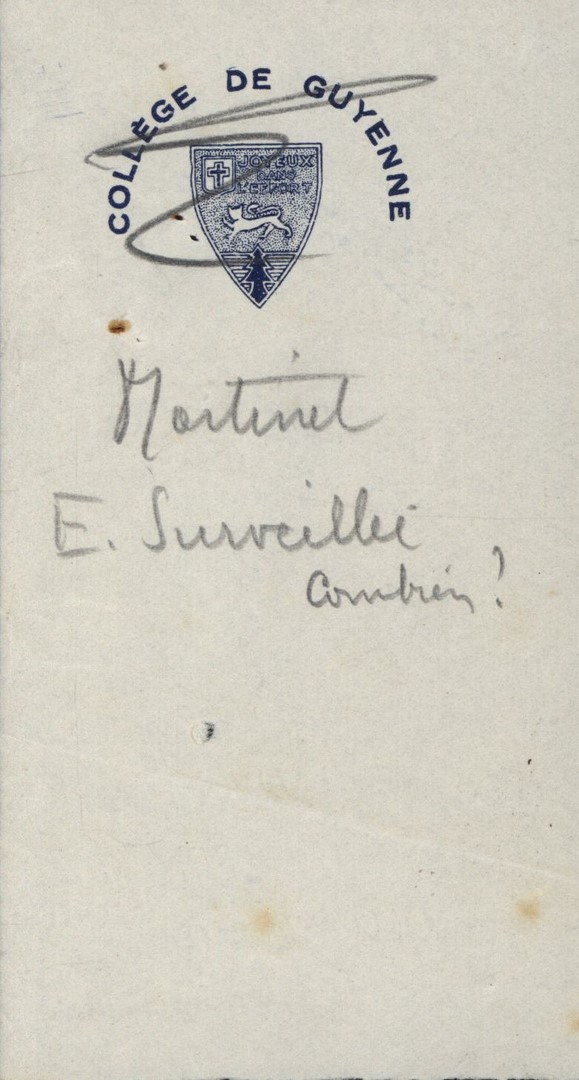 COLLÈGE DE GUYENNE
JOYEUX
DANS
L'EFFORT
Martinel
E. Surveillée
Combien?